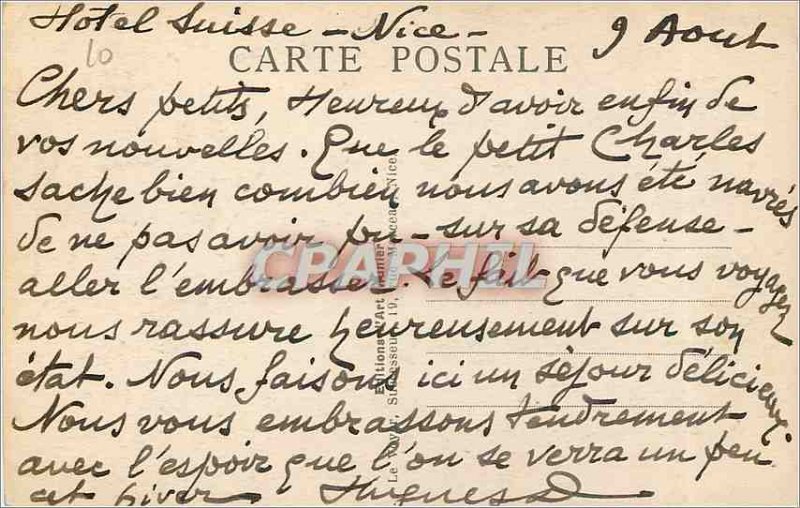 Hôtel Suisse - Nice - 9 Aout
10
CARTE POSTALE
Chers petits, Heureux d'avoir enfin de
vos nouvelles. Que le petit Charles
sache bien combien nous avons été navrés
de ne pas avoir pu - sur sa défense -
aller l'embrasser. Le fait que vous voyagez
nous rassure heureusement sur son
état. Nous faisons ici un séjour délicieux.
Nous vous embrassons tendrement
avec l'espoir que l'on se verra un peu
cet hiver Hugues
CPAPHIL
Editions d'Art
Le Voyer, Successeur, 19, Nice